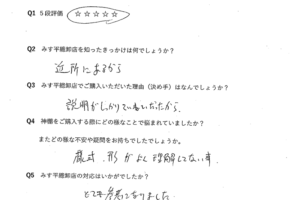 Q1 5段評価 ☆☆☆☆☆
Q2 みす平總卸店を知ったきっかけは何でしょうか？
近所にあるから
Q3 みす平總卸店でご購入いただいた理由（決め手）はなんでしょうか？
説明がしっかりしていただいたから
Q4 神棚をご購入する際にどの様なことで悩まれていましたか？
またどの様な不安や疑問をお持ちでしたでしょうか。
様式、形がよく理解してない事
Q5 みす平總卸店の対応はいかがでしたか？
とても参考になりました